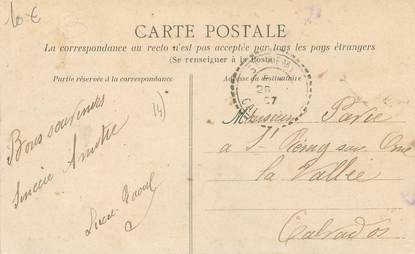 10 €
CARTE POSTALE
La correspondance au recto n'est pas acceptée par tous les pays étrangers
(Se renseigner à la Poste)
Partie réservée à la correspondance
Adresse du destinataire
14)
Bons souvenirs
Sincère Amitié
Raoul
26
07
Monsieur Pavie
a St Rémy sur Orne
la Vallée
Calvados